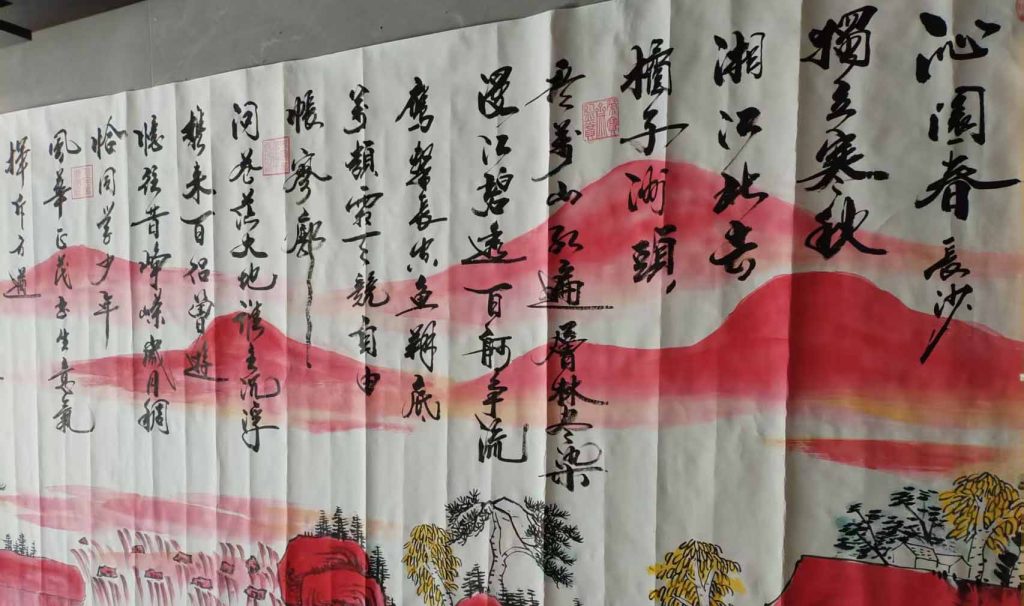 沁園春 長沙
獨立寒秋
湘江北去
橘子洲頭
看萬山红遍層林尽染
漫江碧透百舸争流
鷹擊長空魚翔底
萬類霜天競自由
悵寥廓
問蒼茫大地誰主沉浮
携来百侣曾遊
憶往昔峥嵘歲月稠
恰同学少年
風華正茂书生意氣
揮斥方遒